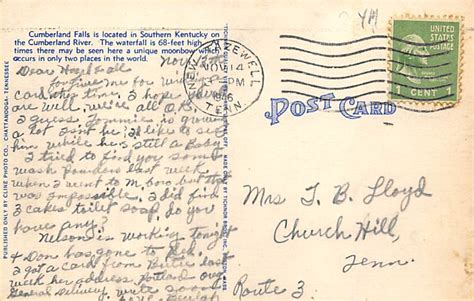 Cumberland Falls is located in Southern Kentucky on
the Cumberland River. The waterfall is 68-feet high
times there may be seen here a unique moonbow which
occurs in only two places in the world.
Dear Hazel & all
for a
card this time. I hope you
are well. we're all O.K.
I guess Tommie is growing
a lot isn't he. I'd like to see
him while he's still a Baby
I tried to find you some
wash powders last week
when I went to M. boro but that
was impossible. I did find
3 cakes toilet soap do you
have any.
Nelson is working tonight
Don has gone to
I got a card from last
week her address Portland
General Delivery. Write soon
Love Beulah
PUBLISHED ONLY BY CLINE PHOTO CO., CHATTANOOGA, TENNESSEE
NEW TAZEWELL
NOV 14
PM
1946
TENN.
UNITED STATES POSTAGE
1 CENT 1
POST CARD
Mrs T. B. Lloyd
Church Hill,
Tenn.
Route 3.